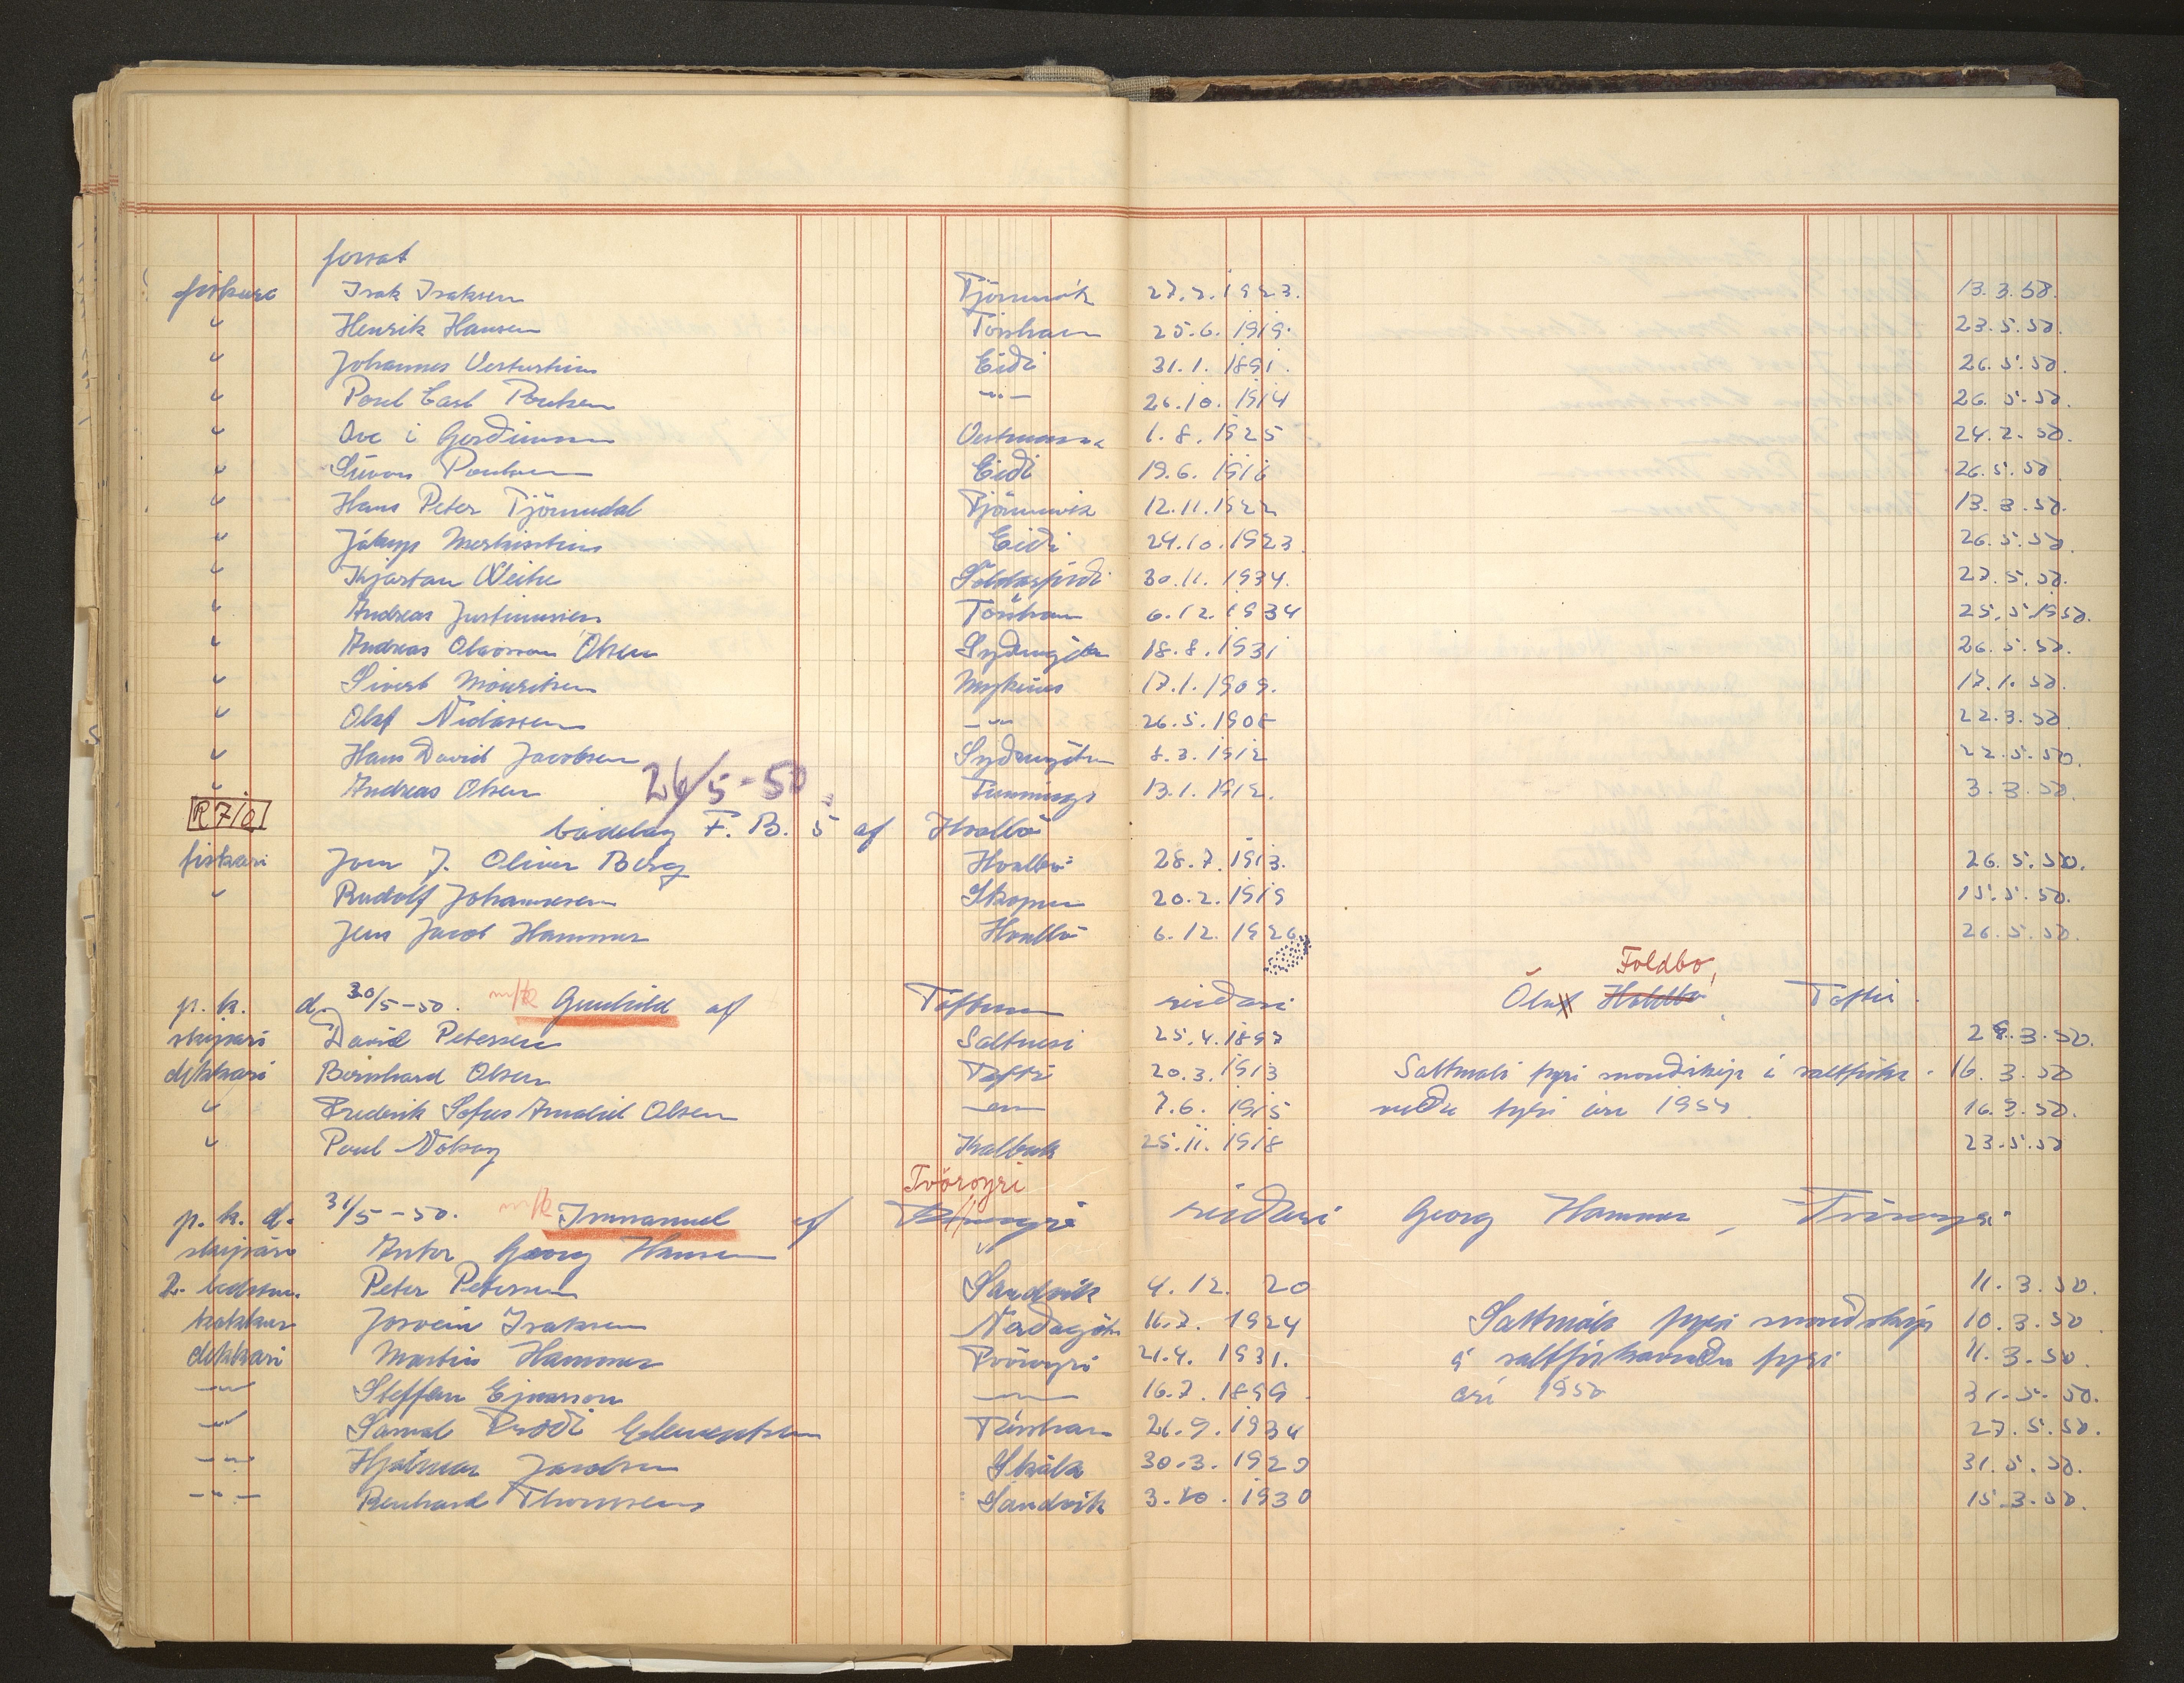 forsat
fiskari Isak Isaksen Tjörnuvík 27.2.1923. 13.3.50.
" Henrik Hansen Tórshavn 25.6.1919. 23.5.50.
" Johannes Vesturtún Eiði 31.1.1891. 26.5.50.
" Poul Carl Poulsen -"- 26.10.1914 26.5.50.
" Ove i Gerðinum Vestmanna 1.8.1925 24.2.50.
" Poulsen Eiði 19.6.1916 26.5.50
" Hans Peter Tjörnudal Tjörnuvík 12.11.1922 13.3.50.
" Jákup Eiði 24.10.1923. 26.5.50.
" Kjartan Weihe 30.11.1934. 27.5.50.
" Andreas Justinussen Tórshavn 6.12.1934 25.5.1950.
" Andreas Olsen Syðrugøta 18.8.1931 26.5.50.
" Sivert Mouritsen Mykines 17.1.1909. 17.1.50.
" Olaf Niclassen -"- 26.5.1908 22.3.50.
" Hans David Jacobsen Syðrugøta 8.3.1912 22.5.50.
" Andreas Olsen 26/5-50 Funnings 13.1.1912. 3.3.50.
R 710 bádalag F. B. 5 af Hvalbö
fiskari Joen J. Oliver Berg Hvalbö 28.7.1913. 26.5.50.
" Rudolf Johannesen Skopun 20.2.1919 15.5.50.
Jens Jacob Hammer Hvalbö 6.12.1926 26.5.50.
Foldbo,
p. k. d. 30/5-50. m/k Gunhild af Toftum reiðari Óla Toftir.
skipari David Petersen Saltnesi 25.4.1897 28.3.50.
dekkari Bernhard Olsen Tofti 20.3.1913 Saltmáli fyri manskip í saltfiska- 16.3.50
" Frederik Sofus Amaliel Olsen -"- 7.6.1915 veiðu fyri árið 1950. 16.3.50.
" Poul Nolsøy Kaldbak 25.11.1918 23.5.50
Tvöroyri
p. k. d. 31/5-50. m/k Immanuel af reiðari Georg Hammer, Tvöroyri
skipari Anton Georg Hansen "
2. bedstem. Peter Petersen Sandvík 4.12. 20 11.3.50.
kokkur Josvein Isaksen Norðagøtu 16.7.1924 Saltmáli fyri manskip 10.3.50
dekkari Martin Hammer Tvöroyri 21.4.1931. á saltfiskaveiðu fyri 11.3.50.
-"- Steffan Ejnarsson -"- 16.7.1899. 1950 31.5.50.
-"- Samal Clementsen Tórshavn 26.9.1934 27.5.50.
-"- Hjalmar Jacobsen Skála 30.3.1920 31.5.50.
-"- Renhard Thomsen Sandvík 3.10.1930 15.3.50.